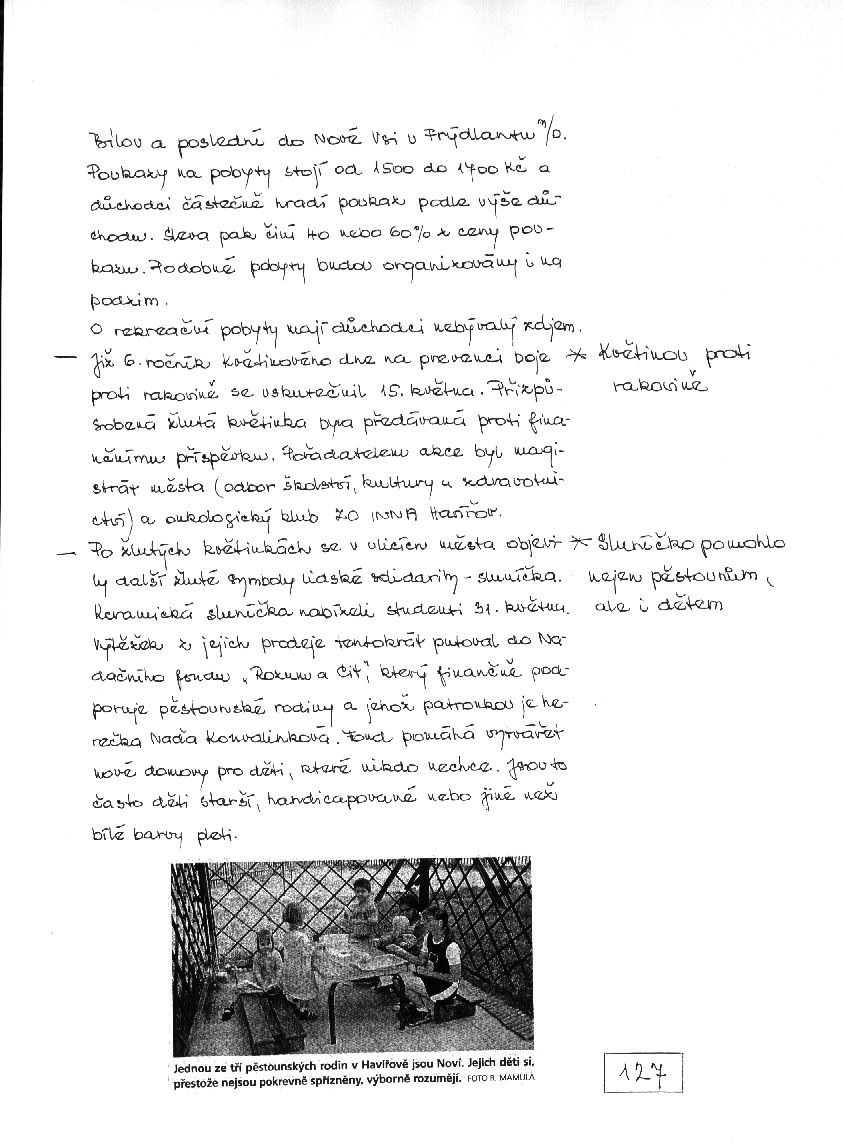 Bílov a poslední do Nové Vsi u Frýdlantu n/O.
Poukazy na pobyty stojí od 1500 do 1700 Kč a
důchodci částečně hradí poukaz podle výše dů-
chodu. Sleva pak činí 40 nebo 60% z ceny pou-
kazu. Podobné pobyty budou organizovány i na
podzim.
O rekreační pobyty mají důchodci nebývalý zájem.
— Již 6. ročník květinového dne na prevenci boje
* Květinou proti
rakovině
proti rakovině se uskutečnil 15. května. Přizpů-
sobená žlutá květinka byla předávaná proti fina-
nčnímu příspěvku. Pořadatelem akce byl magi-
strát města (odbor školství, kultury a zdravotni-
ctví) a onkologický klub ZO INNA Havířov.
— Po žlutých květinkách se v ulicích města objevi-
* Sluníčko pomohlo
nejen pěstounům,
ale i dětem
ly další žluté symboly lidské solidarity - sluníčka.
Keramická sluníčka nabízeli studenti 31. května.
Výtěžek z jejich prodeje tentokrát putoval do Na-
dačního fondu „Rozum a Cit", který finančně pod-
poruje pěstounské rodiny a jehož patronkou je he-
rečka Naďa Konvalinková. Fond pomáhá vytvářet
nové domovy pro děti, které nikdo nechce. Jsou to
často děti starší, handicapované nebo jiné než
bílé barvy pleti.
Jednou ze tří pěstounských rodin v Havířově jsou Noví. Jejich děti si,
přestože nejsou pokrevně spřízněny, výborně rozumějí. FOTO R. MAMULA
127